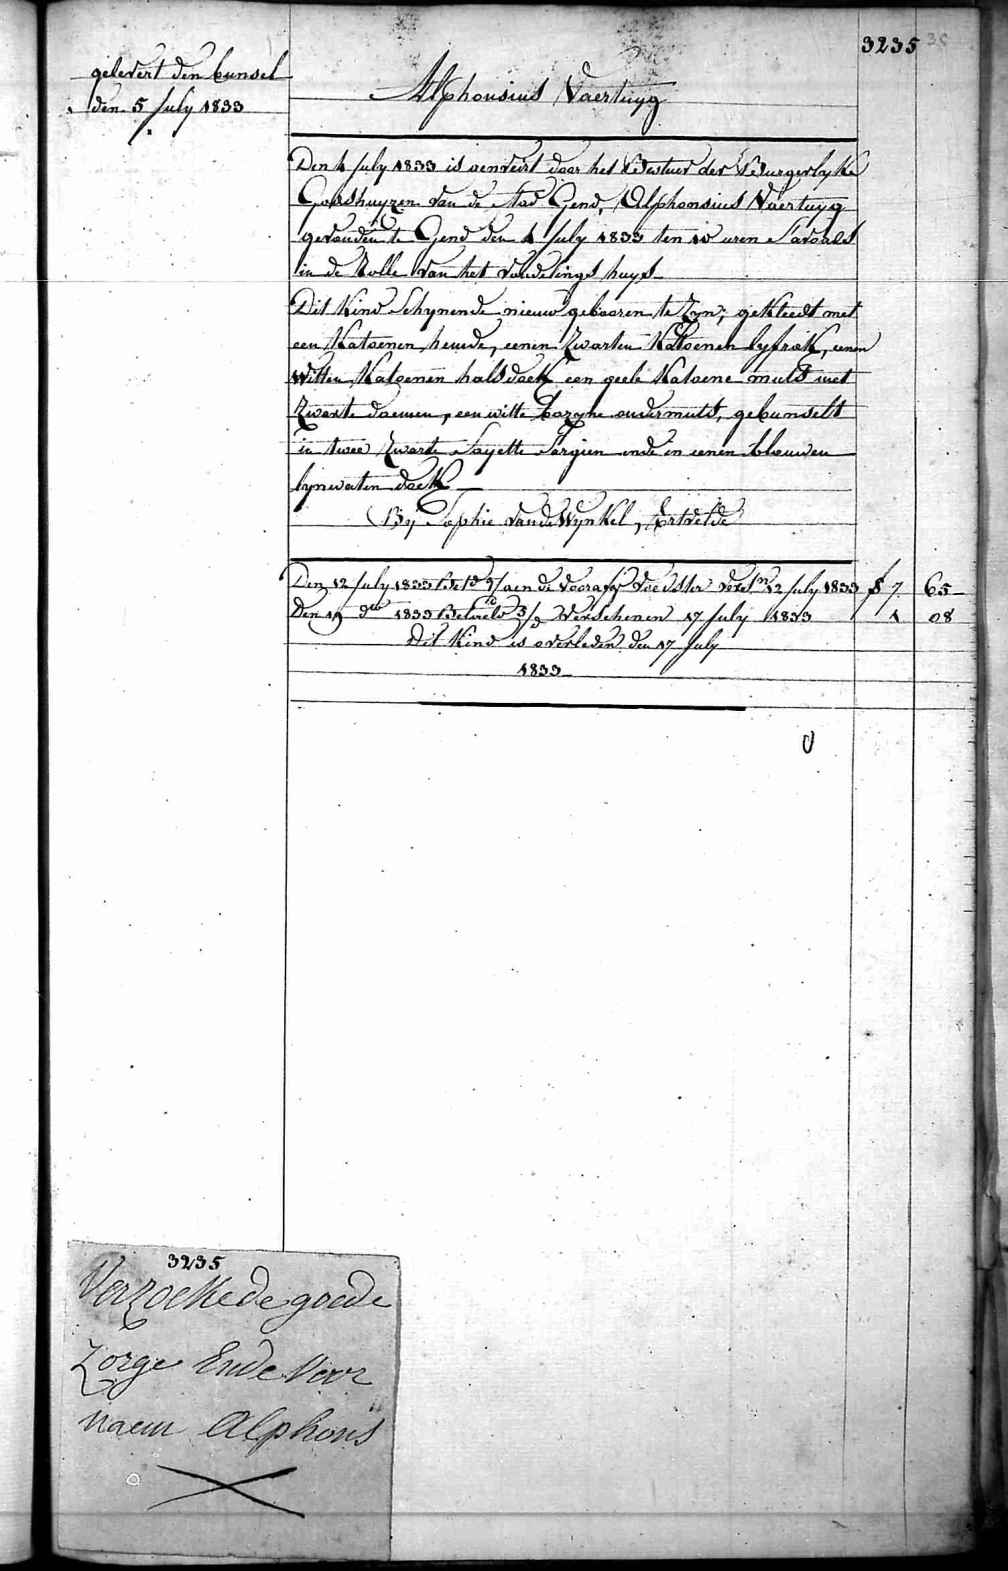 3235
gelevert den bunsel
den 5 July 1833
Alphonsius Vaertuyg
Den 4 July 1833 is aenveirt door het Bestuer der Burgerlyke
Godshuyzen van de Stad Gend, Alphonsius Vaertuyg
gevonden te Gend den 4 July 1833 ten 10 uren S'avonds
in de Rolle van het vondelings huys
Dit Kind Schynende nieuw gebooren te Zyn; gekleedt met
een Katoenen hemde, eenen Zwarten Katoenen lyfrok, eenen
Witten Katoenen halsdoek een geele Katoene muts met
Zwarte bloemen, een witte bazyne ondermuts, gebunselt
in twee Zwarte Sayette Sargien ende in eenen blauwen
lynwaten doek
By Sophie Van de Wynkel, Ertvelde
Den 12 July 1833 aen de Voedster 12 July 1833 f 7 65
Den 19 do 1833 Betaeld Verschenen 17 July 1833 1 08
Dit Kind is overleden den 17 July
1833
3235
Verzoeke de goede
Zorge Ende Voor
naem Alphons